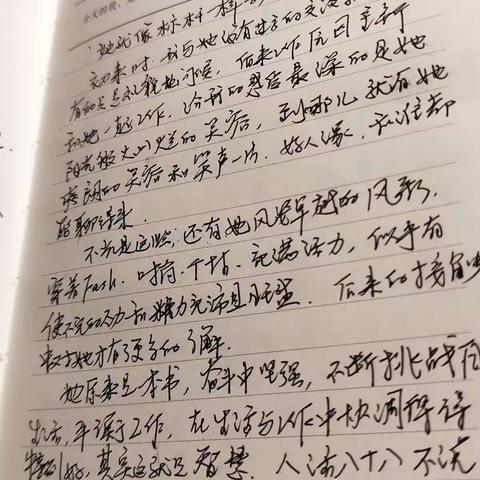 今天的我,
她就像标杆一样
初来时,我与她没有过多的交流,
有的只是礼貌地问候,后来工作后回主
和她一起工作,给我的感活最深的是她
阳光般火火的笑容,到哪儿就有她
爽朗的笑容和笑声一片,好人缘,和谁都
能聊得来.
不光是这些,还有她风姿卓越的风彩,
穿着Fash.时尚.干练.充满活力,似乎有
使不完的劲和精力充沛且旺盛.后来的接触
中对她才有了更多的了解.
她原来是一本书,奋斗中坚强,不断挑战自
生活,平淡工作,在生活与工作中协调得
特别好,其实这就是智慧.人活八十八不